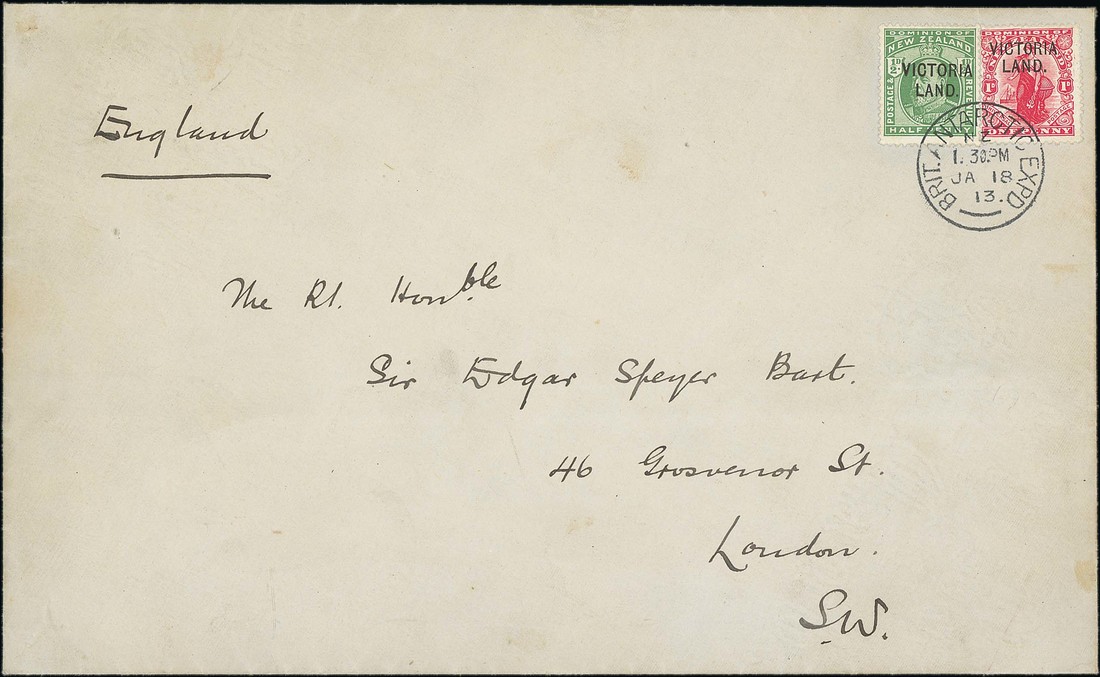 DOMINION OF
NEW ZEALAND
½D
VICTORIA
LAND.
POSTAGE &
REVENUE
HALF PENNY
DOMINION OF
VICTORIA
LAND.
1D
1D
POSTAGE
ONE PENNY
BRIT. ANTARCTIC EXPD
N.Z.
1.30.PM
JA 18
13.
England
The Rt. Honble
Sir Edgar Speyer Bart.
46 Grosvenor St.
London.
S.W.